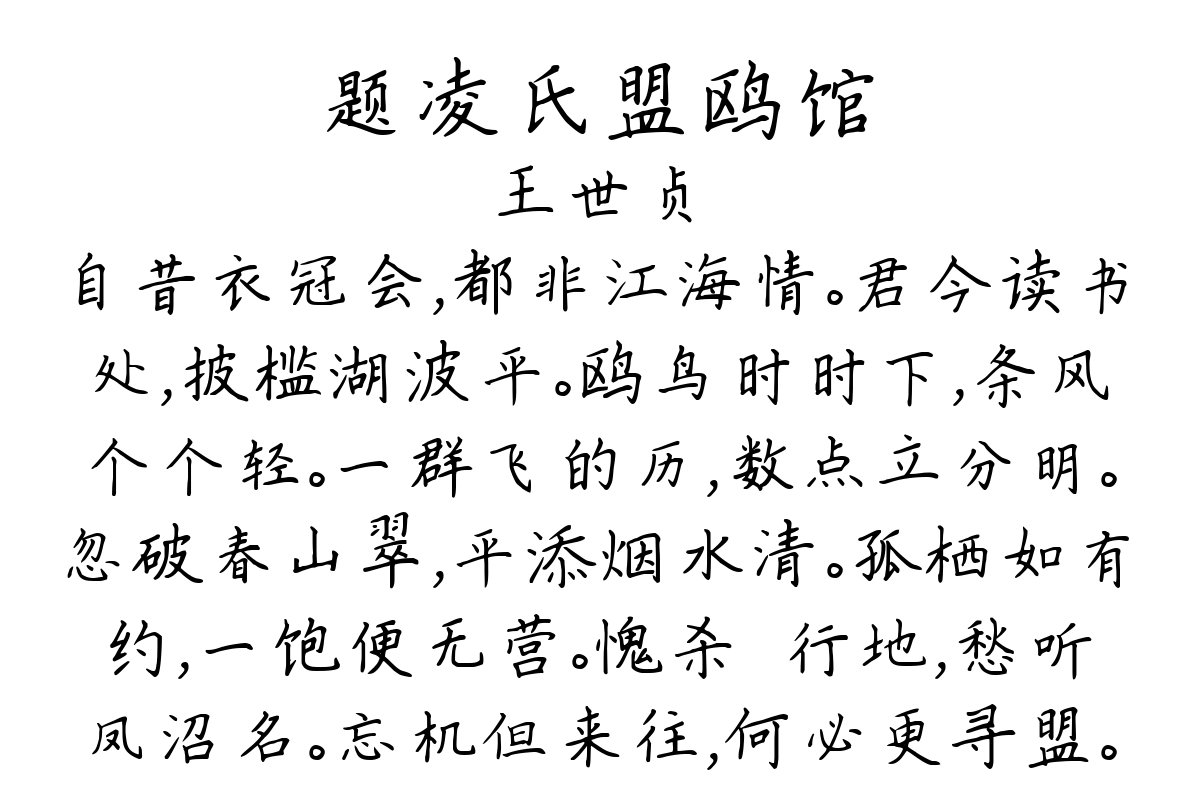 题凌氏盟鸥馆
王世贞
自昔衣冠会,都非江海情。君今读书
处,披槛湖波平。鸥鸟时时下,条风
个个轻。一群飞的历,数点立分明。
忽破春山翠,平添烟水清。孤栖如有
约,一饱便无营。愧杀 行地,愁听
凤沼名。忘机但来往,何必更寻盟。